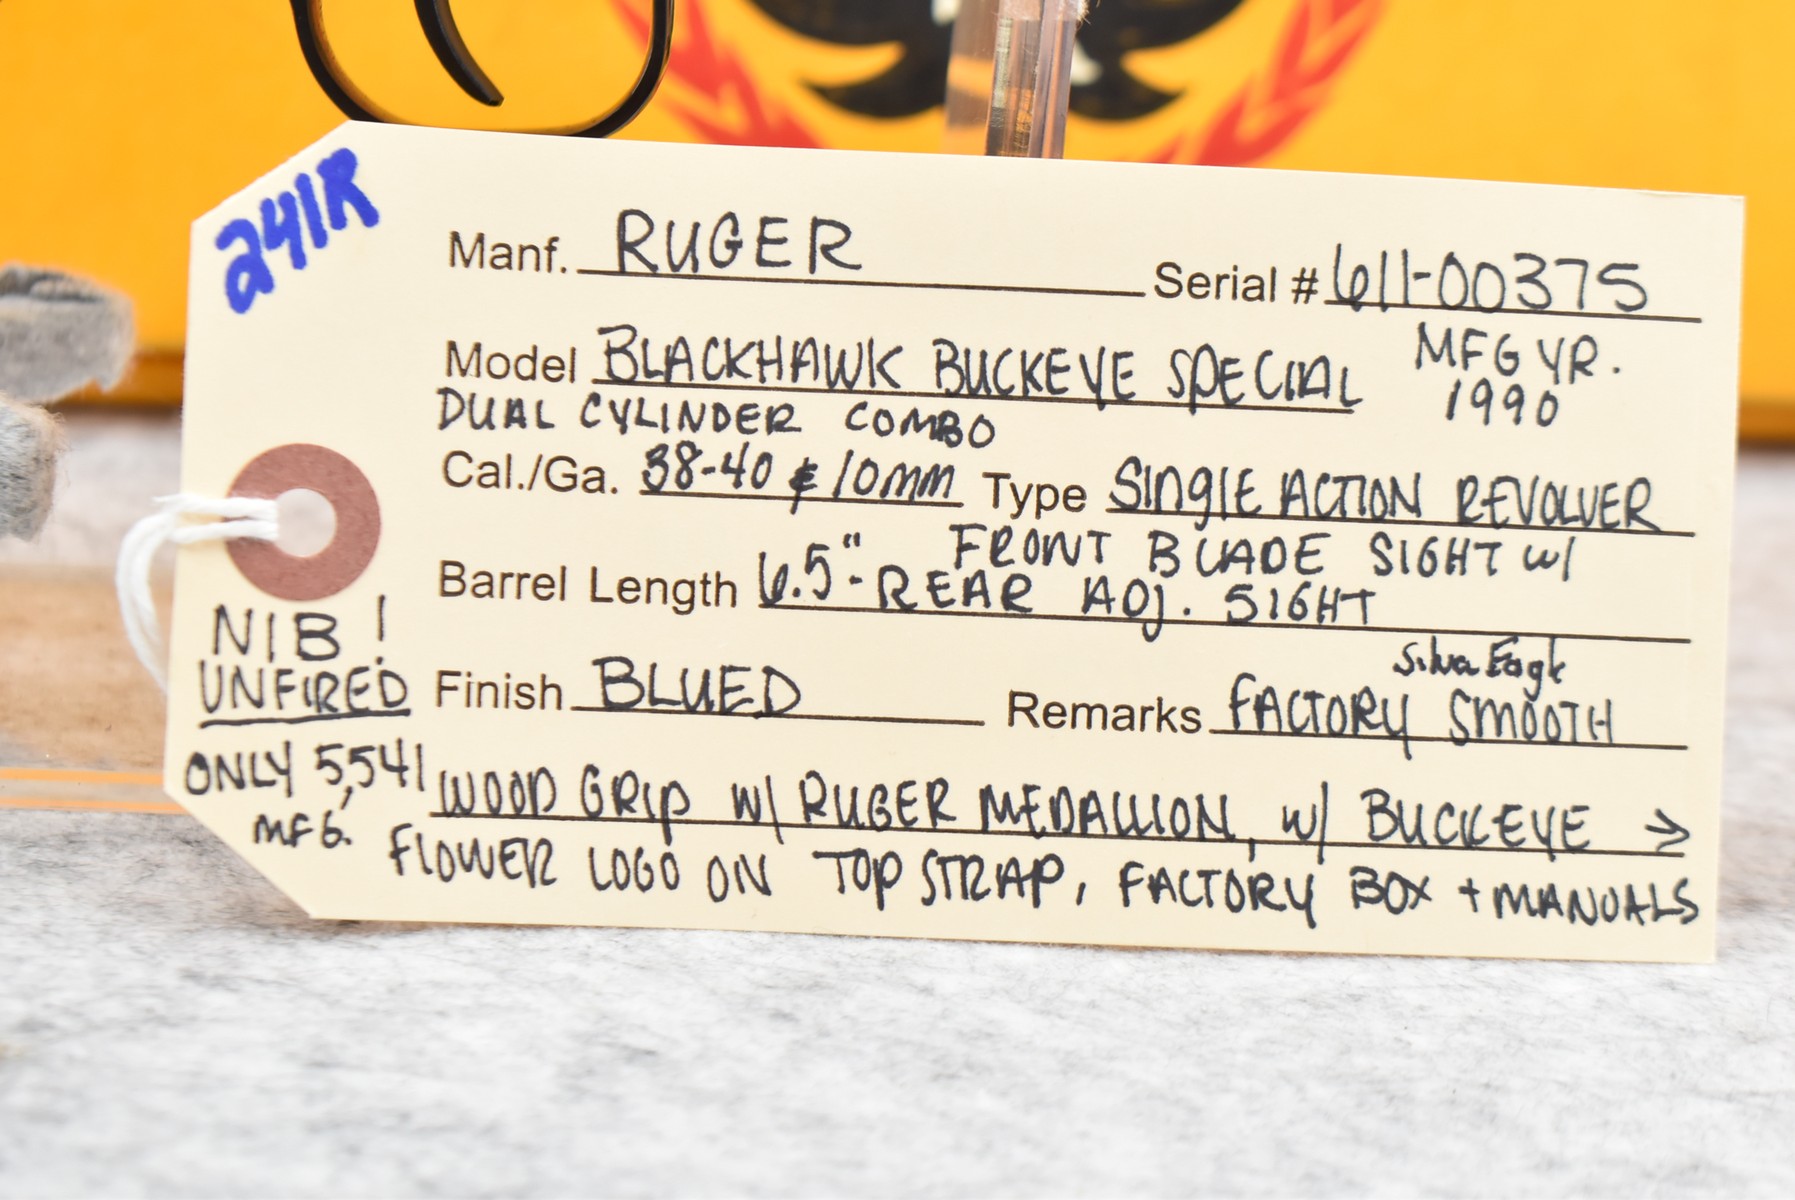 241R
Manf. RUGER Serial # 611-00375
Model BLACKHAWK BUCKEYE SPECIAL MFG YR. 1990
DUAL CYLINDER COMBO
Cal./Ga. 38-40 & 10mm Type SINGLE ACTION REVOLVER
FRONT BLADE SIGHT w/
Barrel Length 6.5"- REAR ADJ. SIGHT
NIB!
UNFIRED
Silver Eagle
Finish BLUED Remarks FACTORY SMOOTH
ONLY 5,541
MFG.
WOOD GRIP w/ RUGER MEDALLION, w/ BUCKEYE →
FLOWER LOGO ON TOP STRAP, FACTORY BOX + MANUALS